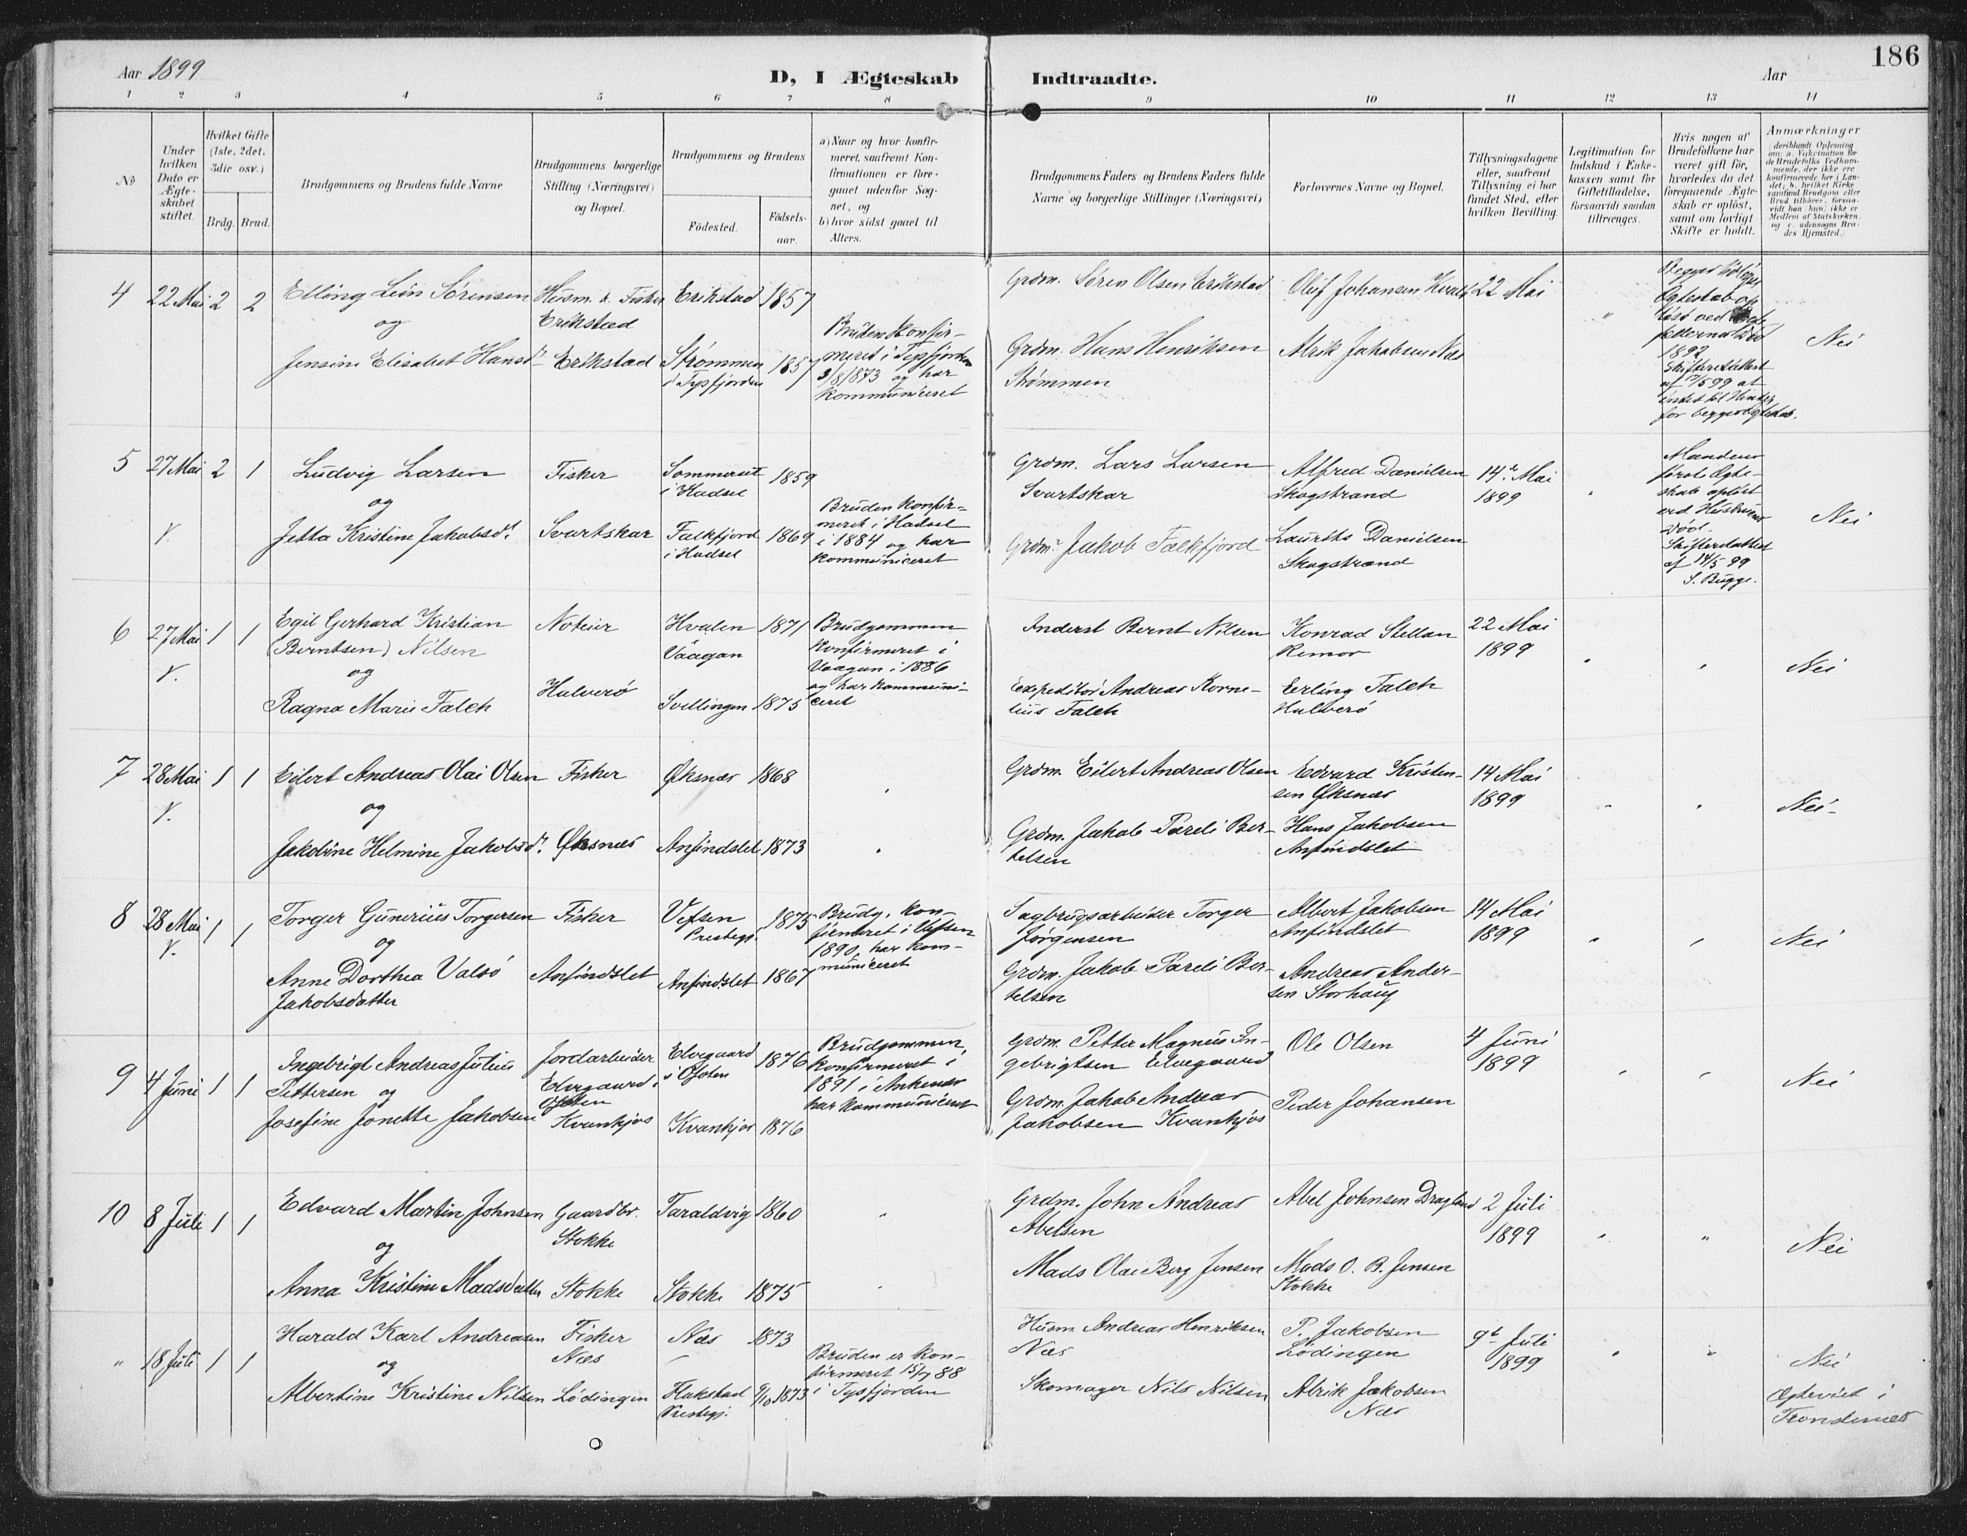 Aar 1899
D, I Ægteskab
Indtraadte.
Aar
186
1 2 3 4 5 6 7 8 9 10 11 12 13 14
No
Under hvilken Dato er Ægteskabet stiftet.
Hvilket Gifte (1ste, 2det, 3die osv.)
Brdg. Brud.
Brudgommens og Brudens fulde Navne
Brudgommens borgerlige Stilling (Næringsvei) og Bopæl.
Brudgommens og Brudens
Fødested.
Fødselsaar.
a) Naar og hvor konfirmeret, saafremt Konfirmationen er foregaaet udenfor Sognet, og
b) hvor sidst gaaet til Alters.
Brudgommens Faders og Brudens Faders fulde Navne og borgerlige Stillinger (Næringsvei)
Forlovernes Navne og Bopæl.
Tillysningsdagene eller, saafremt Tillysning ei har fundet Sted, efter hvilken Bevilling.
Legitimation for Indskud i Enkekassen samt for Giftetilladelse, forsaavidt saadan tiltrænges.
Hvis nogen af Brudefolkene har været gift før, hvorledes da det foregaaende Ægteskab er opløst, samt om lovligt Skifte er holdt.
Anmærkninger
(deriblandt Oplysning om: a. Vakcination for de Brudefolks Vedkommende, der ikke ere konfirmerede her i Landet; b. hvilket Kirkesamfund Brudgom eller Brud tilhører, forsaavidt han (hun) ikke er Medlem af Statskirken, og c. udensogns Brudes Hjemsted.)
4 22 Mai 2 2
Elling Leon Sørensen
og
Jensine Elisabet Hansd.
Husm. & Fisker
Erikstad
Erikstad
Erikstad 1857
Strømmen i Tysfjorden 1857
Bruden konfirmeret i Tysfjorden
3/8 1873 og har
kommuniceret
Grdm. Søren Olsen Erikstad
Grdm. Hans Henriksen
Strømmen
Oluf Johansen
Alrik Jakobsen Næs
22 Mai
"
1892
Skifteattest
af
for begges
Nei
5 27 Mai 2 1
V.
Ludvig Larsen
og
Jetta Kristine Jakobsd.
Fisker
Svartskar
Sommerset
i Hadsel 1859
Falkfjord
i Hadsel 1869
Bruden konfirmeret i Hadsel
i 1884 og har
kommuniceret
Grdm. Lars Larsen
Svartskar
Grdm. Jakob Falkfjord
Alfred Danielsen
Skogstrand
Laurits Danielsen
Skogstrand
14de Mai
1899
"
Mandens
første Ægteskab opløst
ved Hustruens
Død.
Skifteattest
af 14/5 99
S. Bugge.
Nei
6 27 Mai 1 1
V.
Egil Gerhard Kristian
(Berntsen) Nilsen
og
Ragna Marie Falch
Noteier
Halverø
Hvalen
Vaagan 1871
Svellingen 1875
Brudgommen
konfirmeret i
Vaagan i 1886
og har kommuniceret
Inderst Bernt Nilsen
Expeditør Andreas Kornelius Falch
Konrad Stellan
Remor
Eerling Falch
Halverø
22 Mai
1899
" "
Nei
7 28 Mai 1 1
V.
Eilert Andreas Olai Olsen
og
Jakobine Helmine Jakobsd.
Fisker
Øksnæs
Øksnæs 1868
Anfindslet 1873
"
"
Grdm. Eilert Andreas Olsen
Grdm. Jakob Pareli Bertelsen
Edvard Kristensen Øksnæs
Hans Jakobsen
Anfindslet
14 Mai
1899
" "
Nei
8 28 Mai 1 1
V.
Torger Gunerius Torgersen
og
Anne Dorthea Valsø
Jakobsdatter
Fisker
Anfindslet
Vefsen
Prestegj. 1875
Anfindslet 1867
Brudg. konfirmeret i Vefsen
1890, har kommuniceret
Sagbrugsarbeider Torger
Jørgensen
Grdm. Jakob Pareli Bertelsen
Albert Jakobsen
Anfindslet
Andreas Andersen Storhaug
14 Mai
1899
" "
Nei
9 4 Juni 1 1
Ingebrigt Andreas Julius
Pettersen og
Josefine Jonette Jakobsen
Jordarbeider
Elvegaard i
Ofoten
Kvankjos
Elvegaard
i Ofoten 1876
Kvankjos 1876
Brudgommen,
konfirmeret i
1891 i Ankenæs
har kommuniceret
Grdm. Petter Magnus Ingebrigtsen Elvegaard
Grdm. Jakob Andreas
Jakobsen Kvankjos
Ole Olsen
Peder Johansen
4 Juni
1899
" "
Nei
10 8 Juli 1 1
Edvard Martin Johnsen
og
Anna Kristine Madsdatter
Gaardbr.
Stokke
Stokke
Taraldvig 1860
Stokke 1875
"
"
Grdm. John Andreas
Abelsen
Mads Olai Berg Jensen
Abel Johnsen Dragland
Mads O. B. Jensen
Stokke
2 Juli
1899
" "
Nei
" 18 Juli 1 1
Harald Karl Andreasen
og
Albertine Kristine Nilsen
Fisker
Næs
Lødingen
Næs 1873
Flakstad
Prestegj. 9/10 1873
Bruden er konfirmeret 15/7 88
i Tysfjorden
Husm Andreas Henriksen
Næs
Skomager Nils Nilsen
P. Jakobsen
Lødingen
Alrik Jakobsen
Næs
9de Juli
1899
" "
Nei
Ægteviet i
Trondenæs